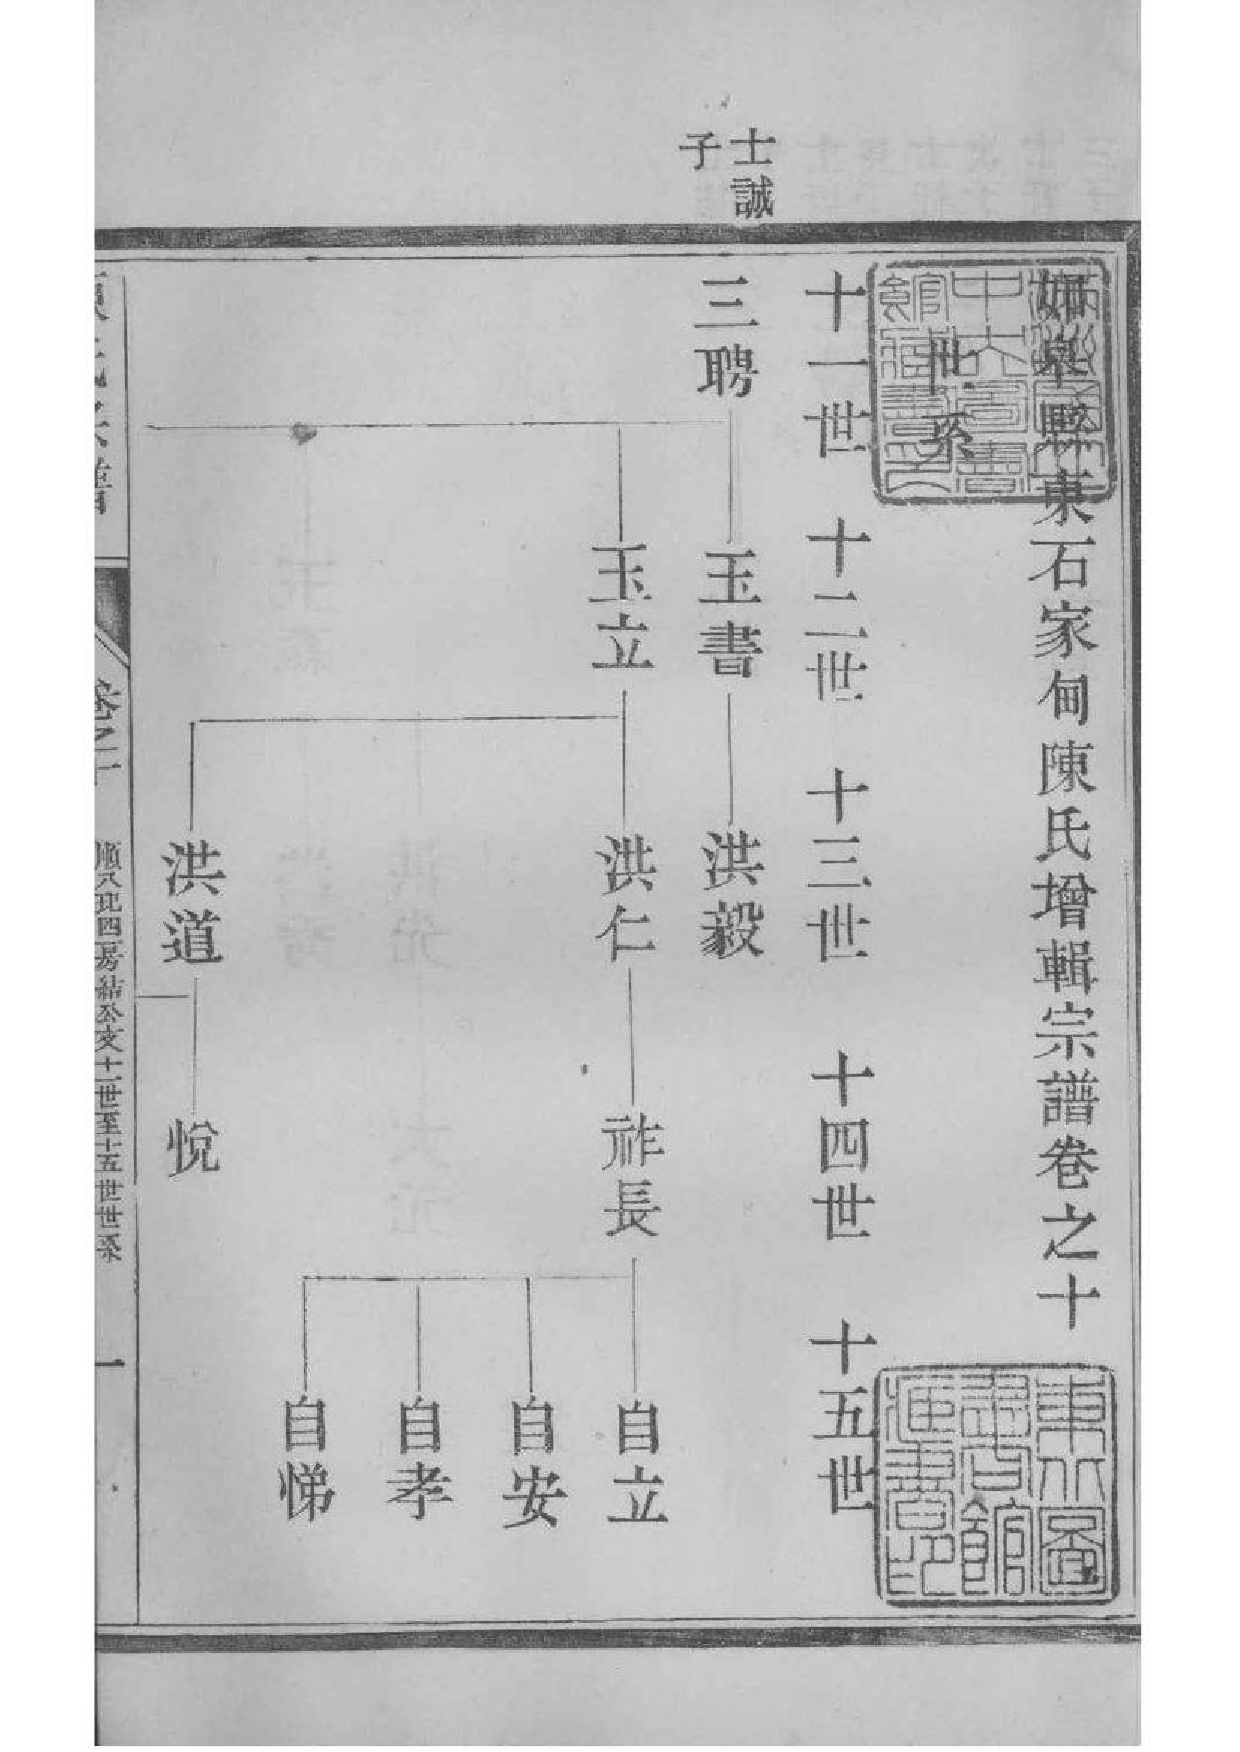 如皋縣東石家甸陳氏增輯宗譜卷之十
世系
十一世 十二世 十三世 十四世 十五世
士誠
子
三聘
玉書
洪毅
玉立
洪仁
祚長
自立
自安
自孝
自悌
洪道
悅
陳氏宗譜
卷之十
四房結公支十一世至十五世世系
一
東北圖
書館